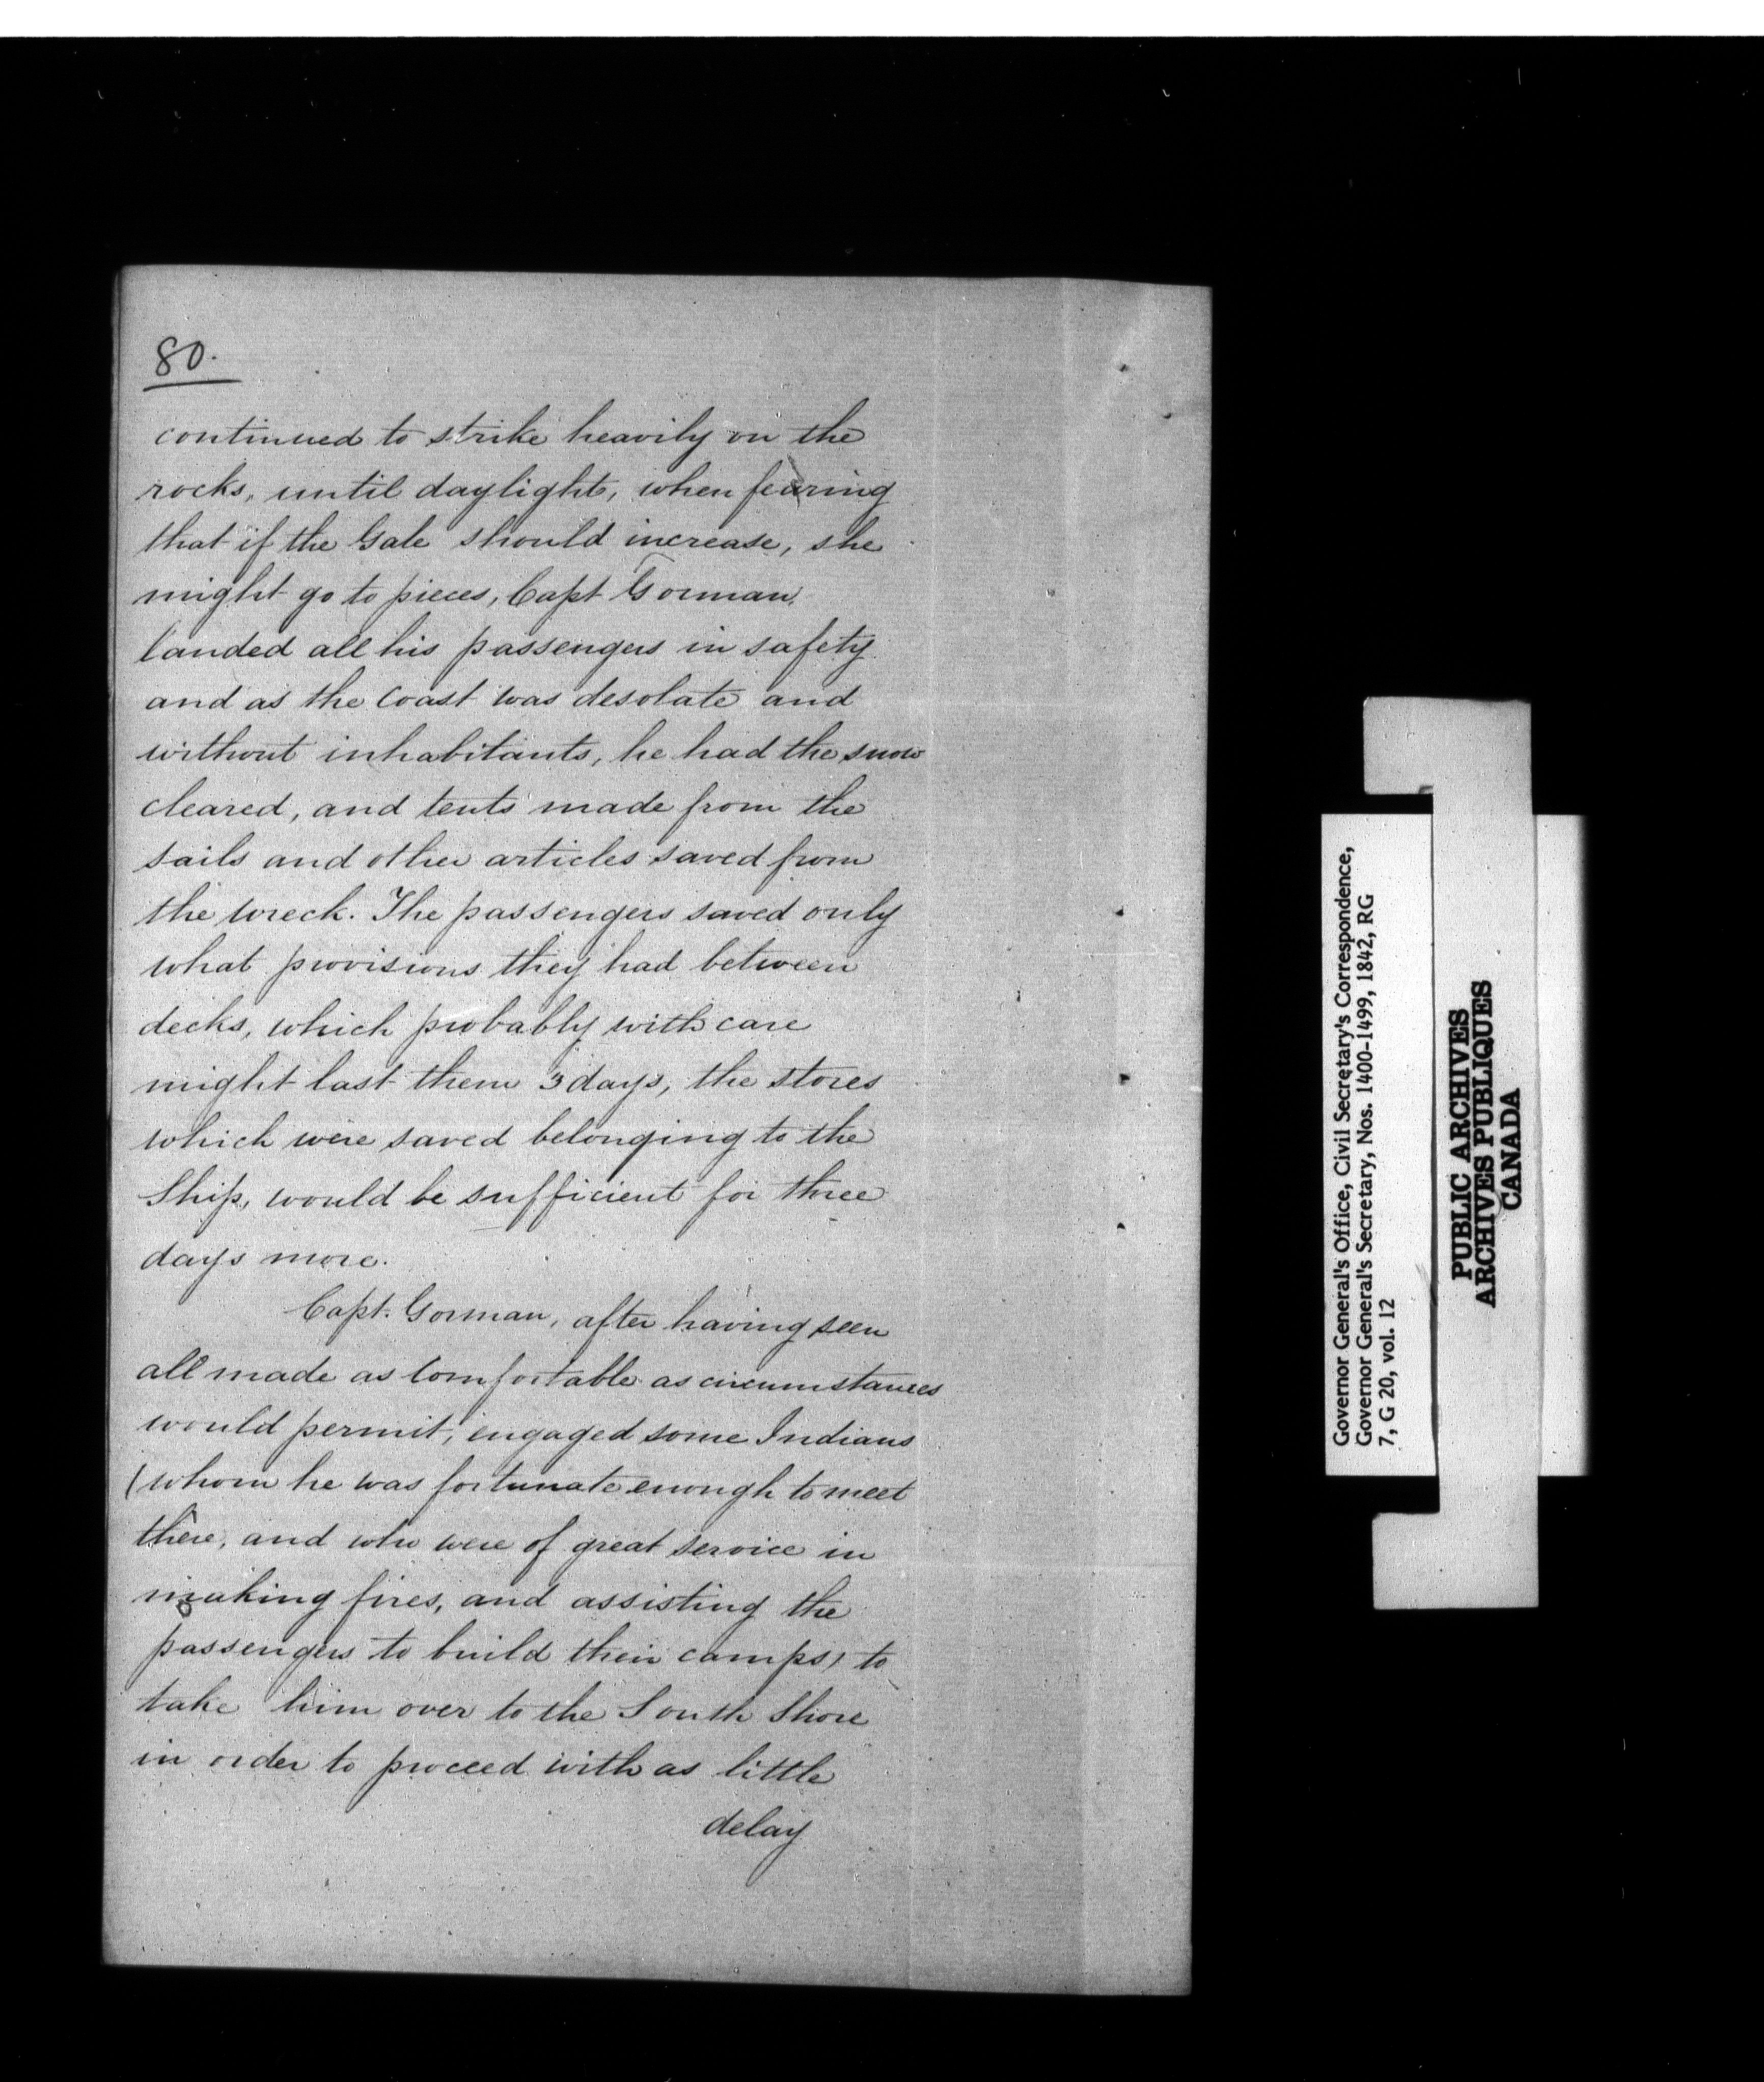 80.
continued to strike heavily on the
rocks, until daylight, when fearing
that if the Gale should increase, she
might go to pieces, Capt Gorman,
landed all his passengers in safety
and as the Coast was desolate and
without inhabitants, he had the snow
cleared, and tents made from the
sails and other articles saved from
the wreck. The passengers saved only
what provisions they had between
decks, which probably with care
might last them 3 days, the stores
which were saved belonging to the
Ship, would be sufficient for three
days more.
Capt. Gorman, after having seen
all made as Comfortable as circumstances
would permit, engaged some Indians
(whom he was fortunate enough to meet
there, and who were of great service in
making fires, and assisting the
passengers to build their camps) to
take him over to the South Shore
in order to proceed with as little
delay
Governor General's Office, Civil Secretary's Correspondence,
Governor General's Secretary, Nos. 1400-1499, 1842, RG
7, G 20, vol. 12
PUBLIC ARCHIVES
ARCHIVES PUBLIQUES
CANADA